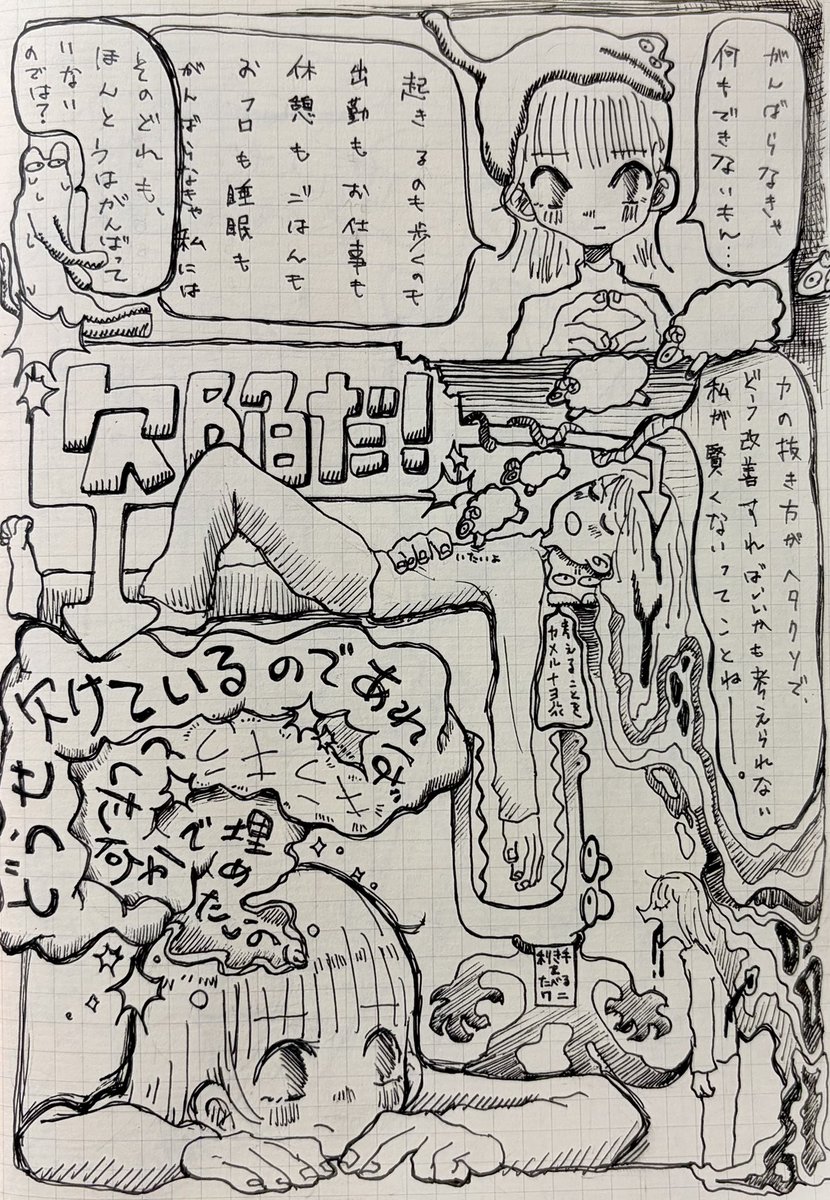 がんばらなきゃ
何もできないもん…
起きるのも歩くのも
出勤もお仕事も
休憩もごはんも
おフロも睡眠も
がんばらなきゃ私には
そのどれも、
ほんとうはがんばって
いない
のでは?
欠陥だ!!
力の抜き方がヘタクソで、
どう改善すればいいかも考えられない
私が賢くないってことねー。
いたいよ
考えることを
どうせ欠けているのであれば
キラキラの
すてきな何かで
埋めたいの
利き手
を
たべる
ワニ